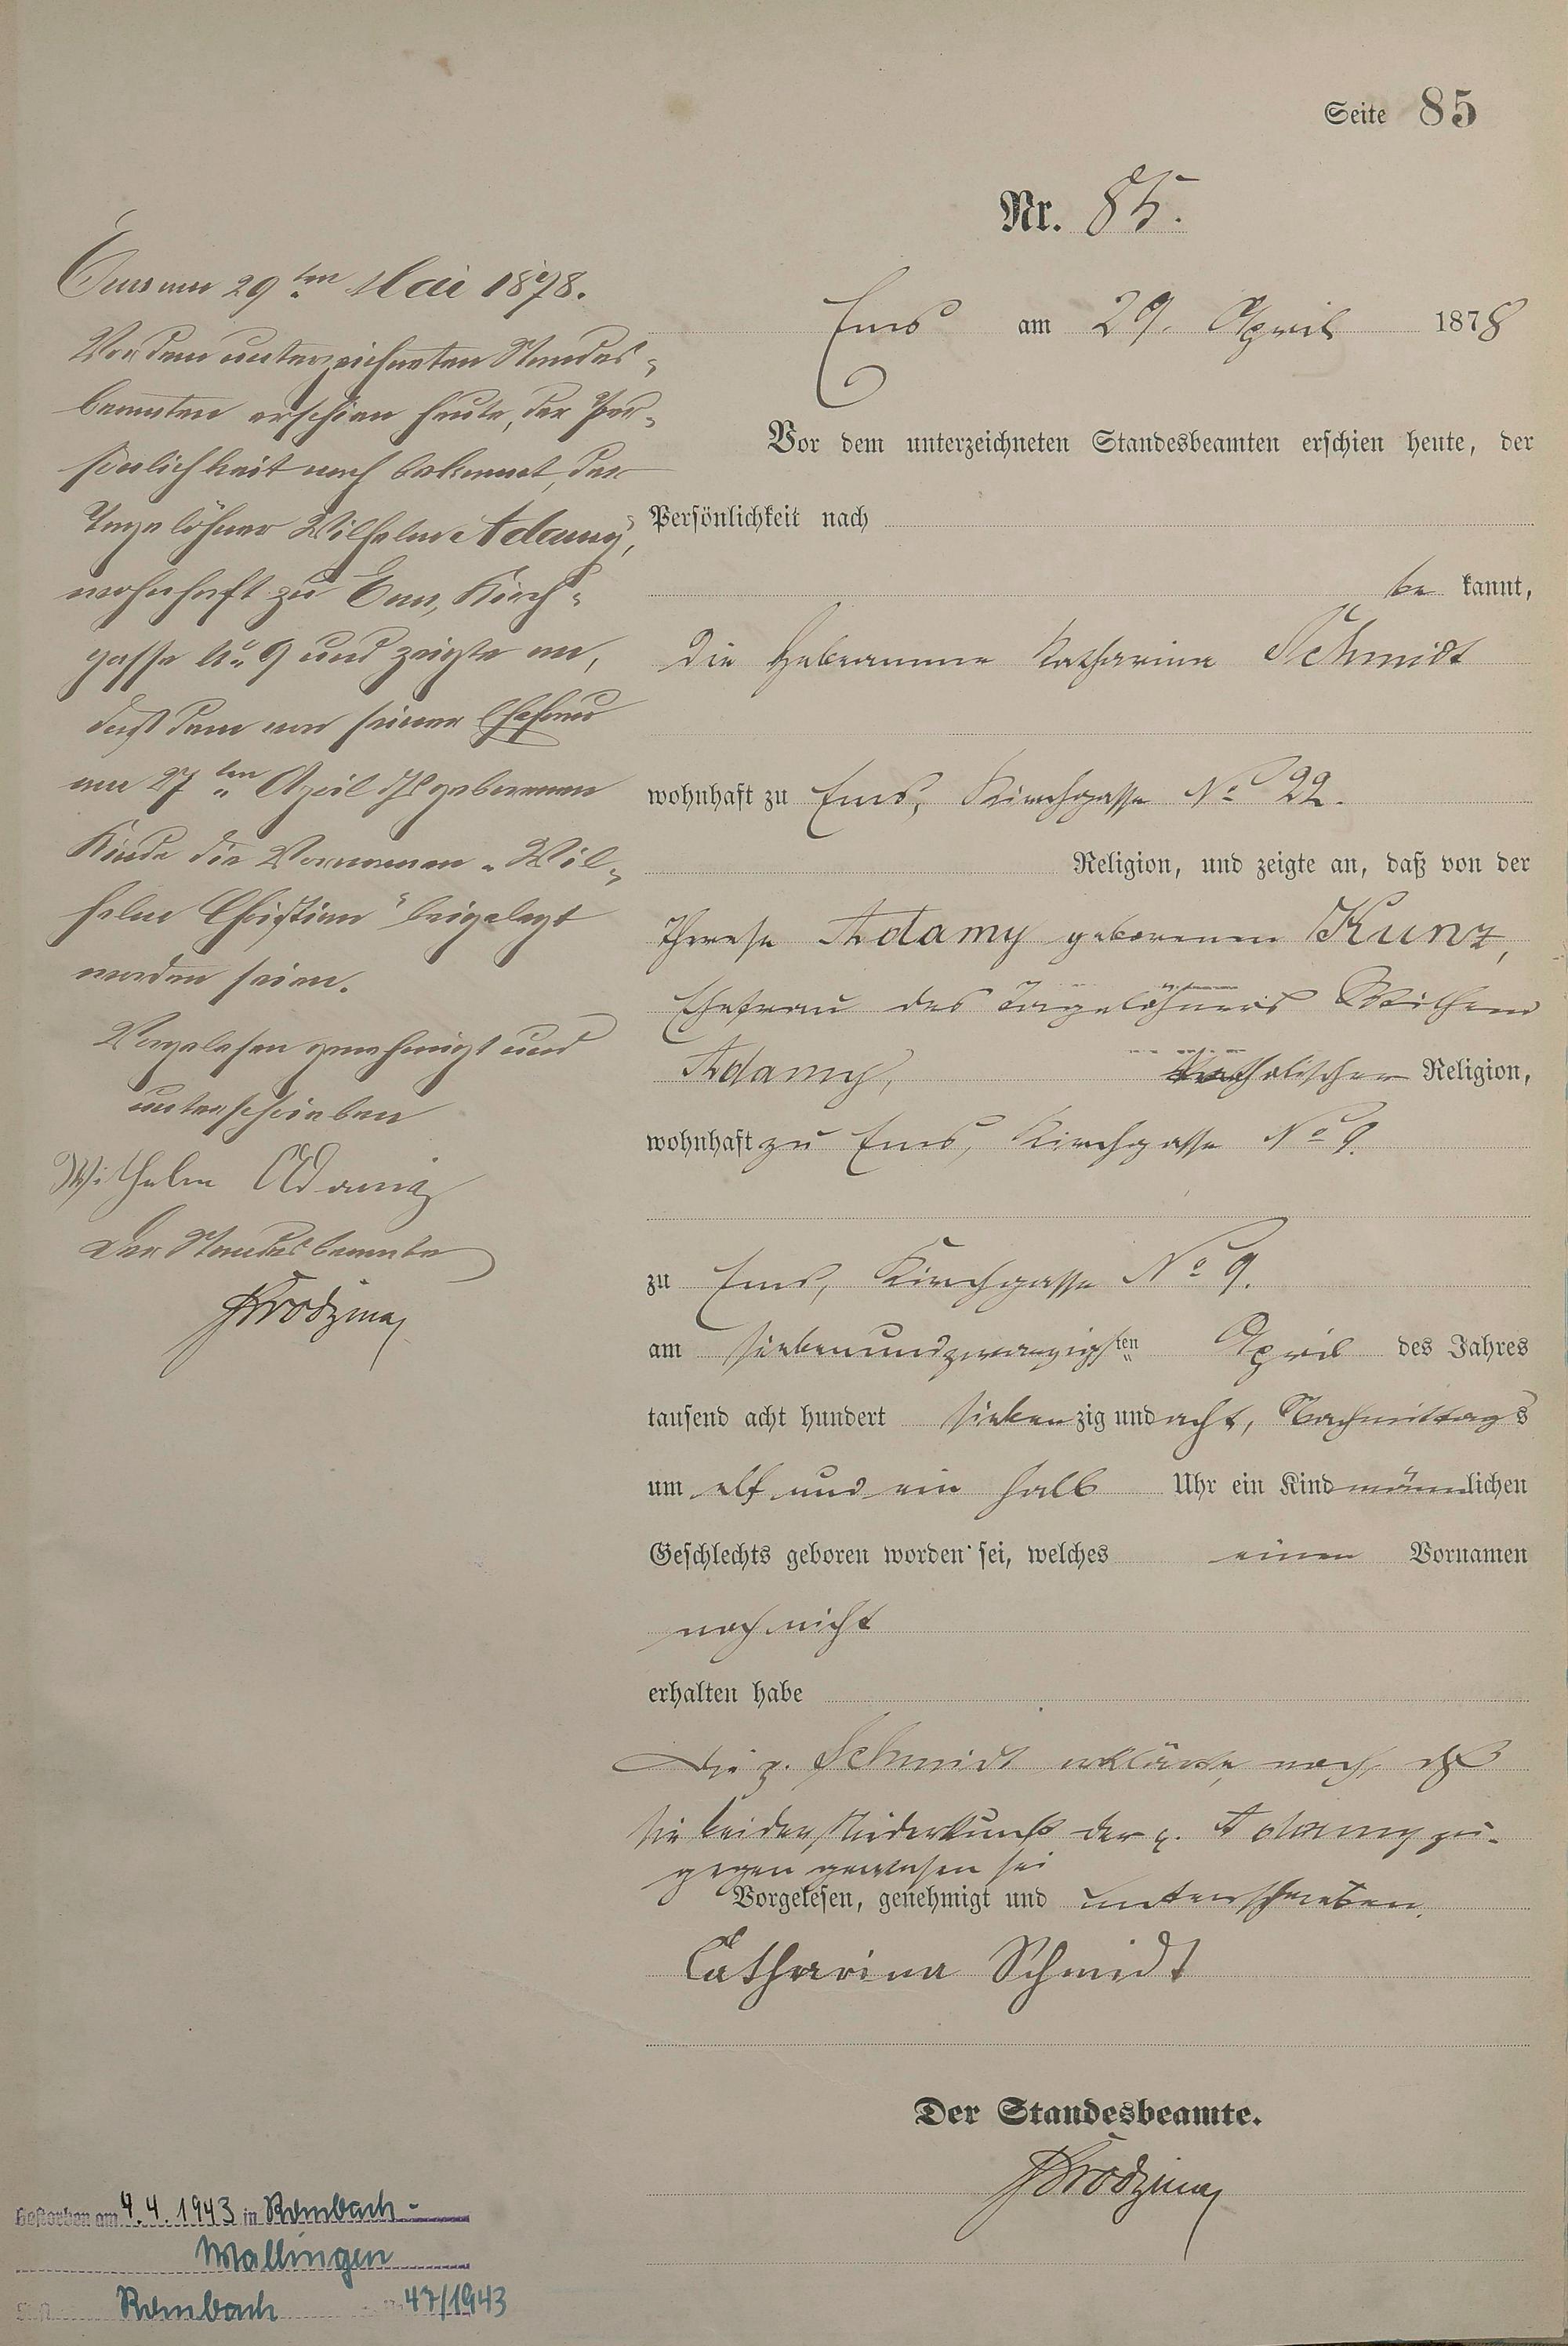 Seite 85
Nr. 85.
Ems am 29. April 1878
Vor dem unterzeichneten Standesbeamten erschien heute, der
Persönlichkeit nach
be kannt,
die Hebeamme Katharina Schmidt
wohnhaft zu Ems, Kirchgasse No 22.
Religion, und zeigte an, daß von der
Therese Adamy geborenen Kunz,
Ehefrau des Tagelöhners Wilhelm
Adamy, katholischer Religion,
wohnhaft zu Ems, Kirchgasse No 9.
zu Ems, Kirchgasse No 9.
am siebenundzwanzigsten April des Jahres
tausend acht hundert siebenzig und acht, Nachmittags
um elf und ein halb Uhr ein Kind männlichen
Geschlechts geboren worden sei, welches einen Vornamen
noch nicht
erhalten habe
Die p. Schmidt erklärte, noch, daß
sie bei der Niederkunft der p. Adamy zu-
gegen gewesen sei
Vorgelesen, genehmigt und unterschrieben.
Catharina Schmidt
Der Standesbeamte.
Ems am 29ten Mai 1878.
Vor dem unterzeichneten Standes-
beamten erschien heute, der Per-
sönlichkeit nach bekannt, der
Tagelöhner Wilhelm Adamy,
wohnhaft zu Ems, Kirch-
gasse No 9 und zeigte an,
daß dem von seiner Ehefrau
am 27ten April geborenen
Kinde die Vornamen "Wil-
helm Christian" beigelegt
worden seien.
Vorgelesen genehmigt und
unterschrieben
Wilhelm Adamy
Der Standesbeamte
Gestorben am 4.4.1943 in Rombach-
Mallingen
Rombach 47/1943